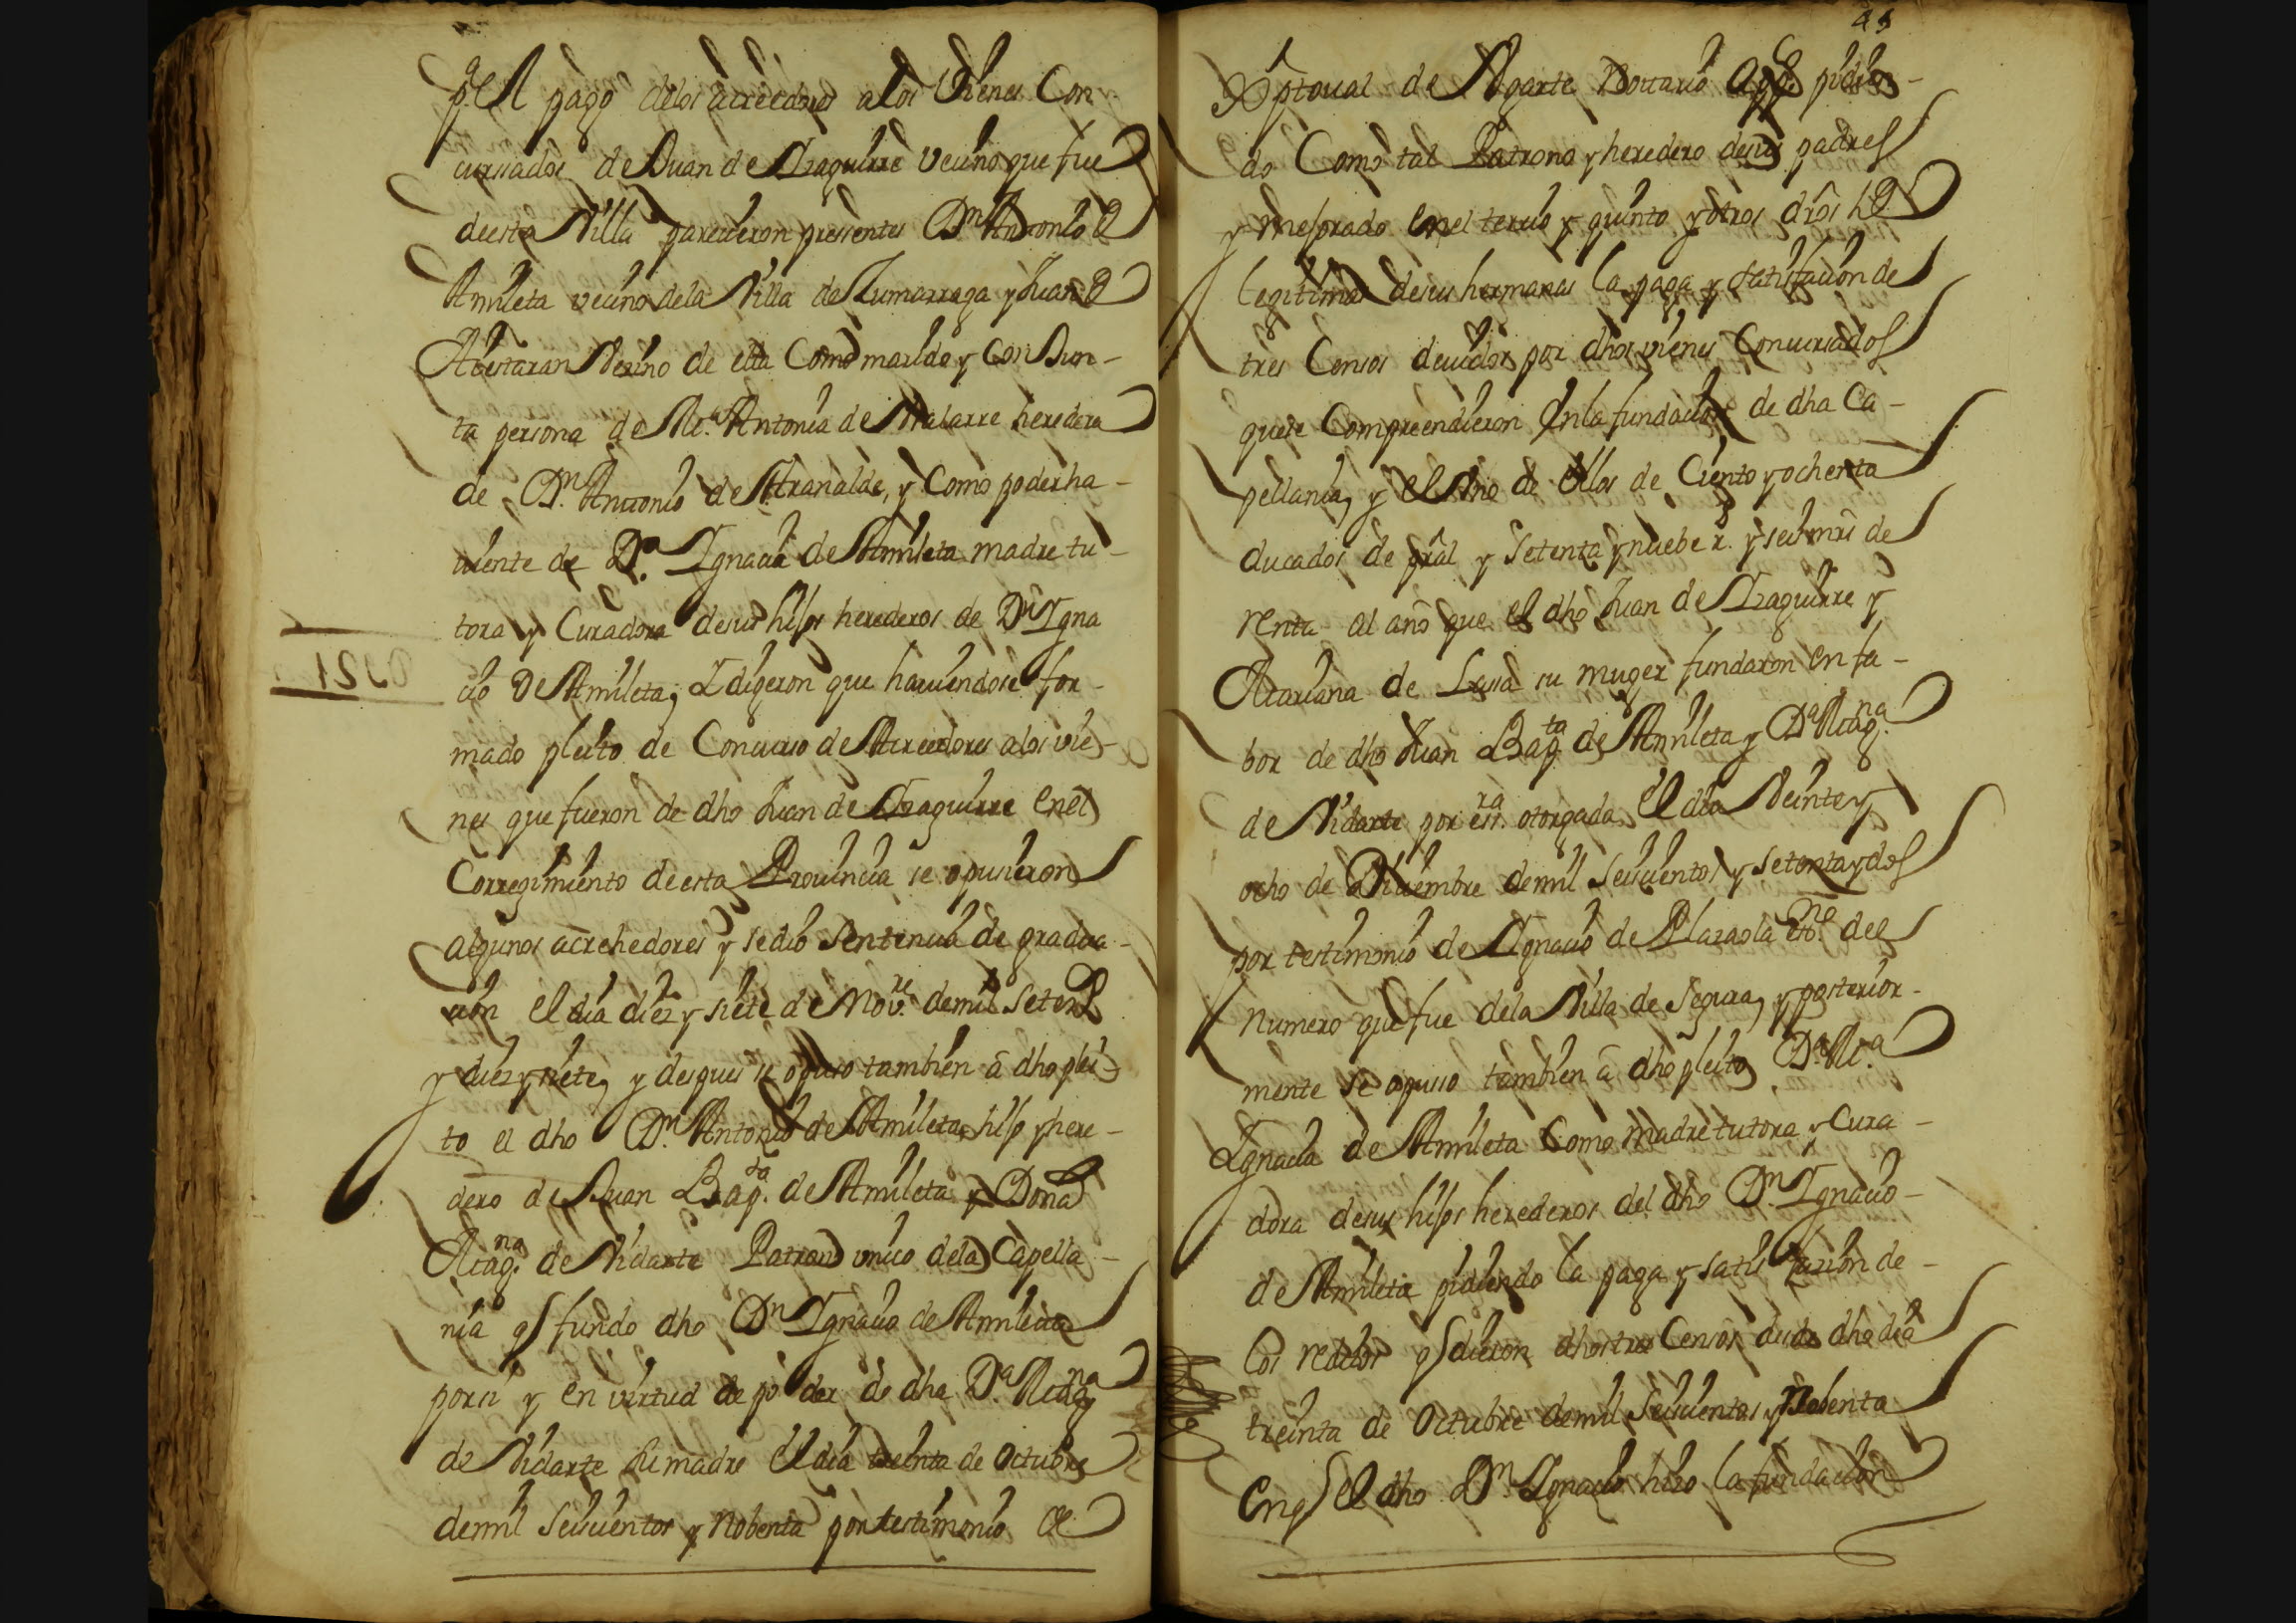 p.ª el pago delos acreedores alos Vienes Con
cursados de Juan de Izaguirre vecino que fue
deesta Villa parecieron pressentes D.n Antonio de
Amileta vecino dela Villa de Zumarraga y Juan de
Alestaran Vezino de ella Como marido y Con Jun-
ta persona de M.ª Antonia de heredera
de D.n Antonio de Aranalde, y Como poderha-
uiente de D.ª Ignacia de Amileta madre tu-
tora y Curadora desus hijos herederos de D.n Igna
cio De Amileta, I digeron que hauiendose for-
mado pleito de Concurso de Acreedores alos vie-
nes que fueron de dho Juan de Izaguirre enel
Corregimiento deesta Prouincia se opusieron
algunos acrehedores y sedio Sentencia de gradua-
cion el dia diez y siete de Nov.re demil Setez.
y diez y siete, y despues se opuso tambien â dho plei-
to el dho D.n Antonio de Amileta hijo y here-
dero de Juan Bap.ta de Amileta y Dona
Mag.na de Vidarte Patron vnico dela Capella-
nia q fundo dho D.n Ignacio de Amileta
porsi y en virtud de poder de dha D.ª Mag.na
de Vidarte su madre el dia treinta de octubre
demil Seiscientos y Nobenta por testimonio de
43
Xptoual de Vgarte Nottario App.co pidien-
do Como tal Patrono y heredero desus padres
y mejorado enel tercio y quinto y otros dros de
legitimas desus hermanas la paga y satisfacion de
tres Censos deuidos por dhos vienes Concursados
quese Compreendieron en la fundacion de dha Ca-
pellania, y el Vno de ellos de Ciento y ochenta
ducados de pral y Setenta y nuebe r.s y seis mrs de
renta al año que el dho Juan de Izaguirre y
Mariana de Lussa su muger fundaron en fa-
bor de dho Juan Bap.ta de Amileta y D.ª Mag.na
de Vidarte por ess.ra otorgada el dia Veinte y
ocho de Diciembre demil Seiscientos y setenta y dos
por testimonio de Ignacio de Plazaola ess.no del
Numero que fue dela Villa de Segura, y posterior-
mente se opusso tambien â dho pleito D.ª M.ª
Ignacia de Amileta Como Madre tutora y Cura-
dora desus hijos herederos del dho D.n Ignacio
de Amileta pidiendo la paga y satisfazion de
los reditos q dieron dhos tres Censos desde dho dia
treinta de Octubre demil Seiscientos y Nobenta
enq el dho D.n Ignacio hizo la fundacion